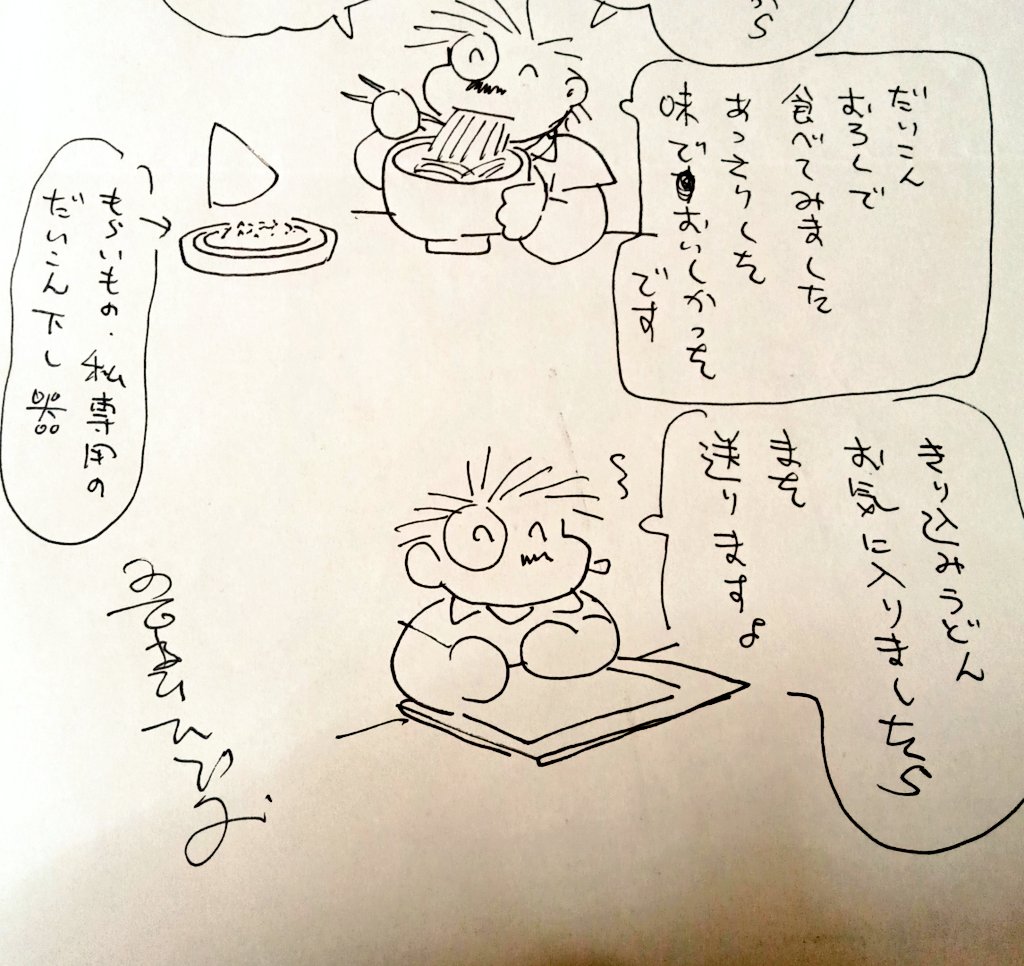 から
だいこん
おろしで
食べてみました
あっさりした
味でおいしかった
です
もらいもの・私専用の
だいこん下し器
きり込みうどん
お気に入りましたら
また
送りますよ